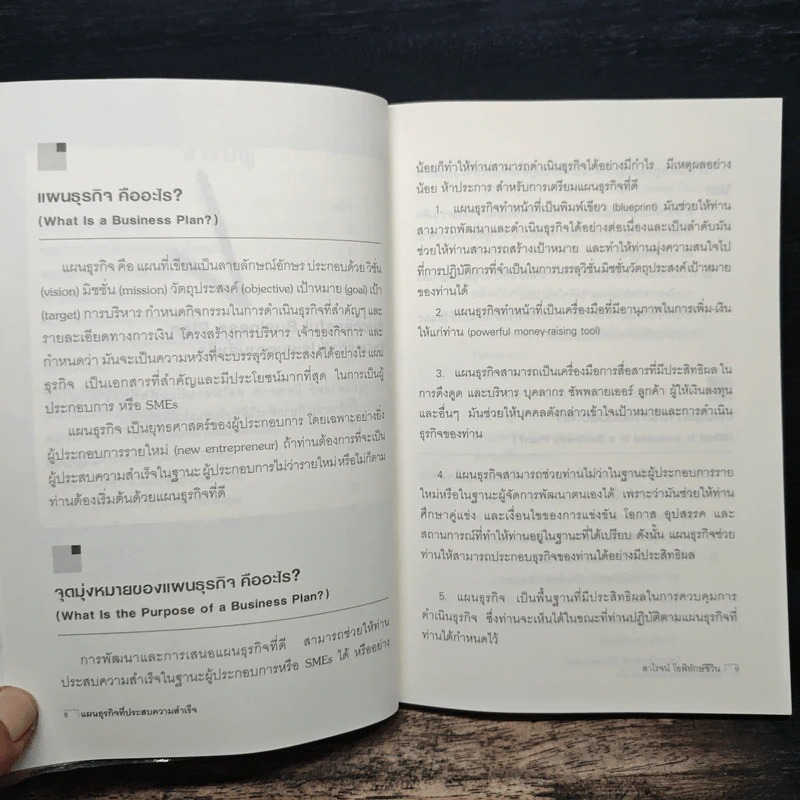 แผนธุรกิจ คืออะไร?
(What Is a Business Plan?)
แผนธุรกิจ คือ แผนที่เขียนเป็นลายลักษณ์อักษร ประกอบด้วย วิชั่น
(vision) มิชชั่น (mission) วัตถุประสงค์ (objective) เป้าหมาย (goal) เป้า
(target) การบริหาร กำหนดกิจกรรมในการดำเนินธุรกิจที่สำคัญๆ และ
รายละเอียดทางการเงิน โครงสร้างการบริหาร เจ้าของกิจการ และ
กำหนดว่า มันจะเป็นความหวังที่จะบรรลุวัตถุประสงค์ได้อย่างไร แผน
ธุรกิจ เป็นเอกสารที่สำคัญและมีประโยชน์มากที่สุด ในการเป็นผู้
ประกอบการ หรือ SMEs
แผนธุรกิจ เป็นยุทธศาสตร์ของผู้ประกอบการ โดยเฉพาะอย่างยิ่ง
ผู้ประกอบการรายใหม่ (new entrepreneur) ถ้าท่านต้องการที่จะเป็น
ผู้ประสบความสำเร็จในฐานะผู้ประกอบการไม่ว่ารายใหม่ หรือไม่ก็ตาม
ท่านต้องเริ่มต้นด้วยแผนธุรกิจที่ดี
จุดมุ่งหมายของแผนธุรกิจ คืออะไร?
(What Is the Purpose of a Business Plan?)
การพัฒนาและการเสนอแผนธุรกิจที่ดี สามารถช่วยให้ท่าน
ประสบความสำเร็จในฐานะผู้ประกอบการหรือ SMEs ได้ หรืออย่าง
8 แผนธุรกิจที่ประสบความสำเร็จ
น้อยก็ทำให้ท่านสามารถดำเนินธุรกิจได้อย่างมีกำไร มีเหตุผลอย่าง
น้อย ห้าประการ สำหรับการเตรียมแผนธุรกิจที่ดี
1. แผนธุรกิจทำหน้าที่เป็นพิมพ์เขียว (blueprint) มันช่วยให้ท่าน
สามารถพัฒนาและดำเนินธุรกิจได้อย่างต่อเนื่องและเป็นลำดับมัน
ช่วยให้ท่านสามารถสร้างเป้าหมาย และทำให้ท่านมุ่งความสนใจไป
ที่การปฏิบัติการที่จำเป็นในการบรรลุวิชั่นมิชชั่นวัตถุประสงค์เป้าหมาย
ของท่านได้
2. แผนธุรกิจทำหน้าที่เป็นเครื่องมือที่มีอานุภาพในการเพิ่ม-เงิน
ให้แก่ท่าน (powerful money-raising tool)
3. แผนธุรกิจสามารถเป็นเครื่องมือการสื่อสารที่มีประสิทธิผล ใน
การดึงดูด และบริหาร บุคลากร ซัพพลายเออร์ ลูกค้า ผู้ให้เงินลงทุน
และอื่นๆ มันช่วยให้บุคคลดังกล่าวเข้าใจเป้าหมายและการดำเนิน
ธุรกิจของท่าน
4. แผนธุรกิจสามารถช่วยท่านไม่ว่าในฐานะผู้ประกอบการราย
ใหม่หรือในฐานะผู้จัดการพัฒนาตนเองได้ เพราะว่ามันช่วยให้ท่าน
ศึกษาคู่แข่ง และเงื่อนไขของการแข่งขัน โอกาส อุปสรรค และ
สถานการณ์ที่ทำให้ท่านอยู่ในฐานะที่ได้เปรียบ ดังนั้น แผนธุรกิจช่วย
ท่านให้สามารถประกอบธุรกิจของท่านได้อย่างมีประสิทธิผล
5. แผนธุรกิจ เป็นพื้นฐานที่มีประสิทธิผลในการควบคุมการ
ดำเนินธุรกิจ ซึ่งท่านจะเห็นได้ในขณะที่ท่านปฏิบัติตามแผนธุรกิจที่
ท่านได้กำหนดไว้
สาโรจน์ โอพิทักษ์ชีวิน 9